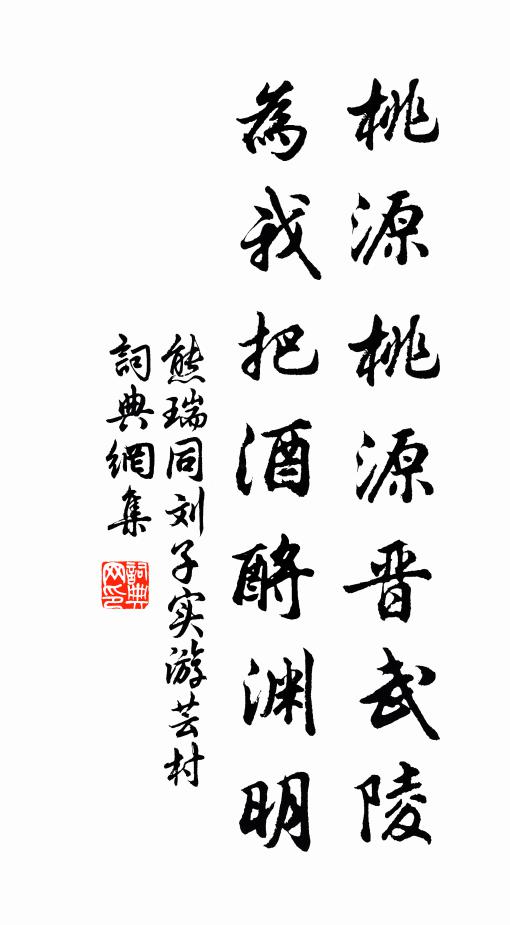 桃源桃源晋武陵
為我把酒酹渊明
熊瑞同刘子实游芸村
詞典網集
詞典
网印